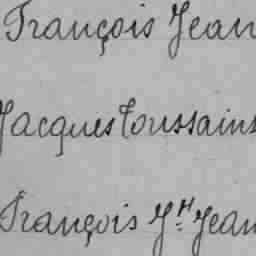 François Jean
Jacques Toussaint
François J.H Jean